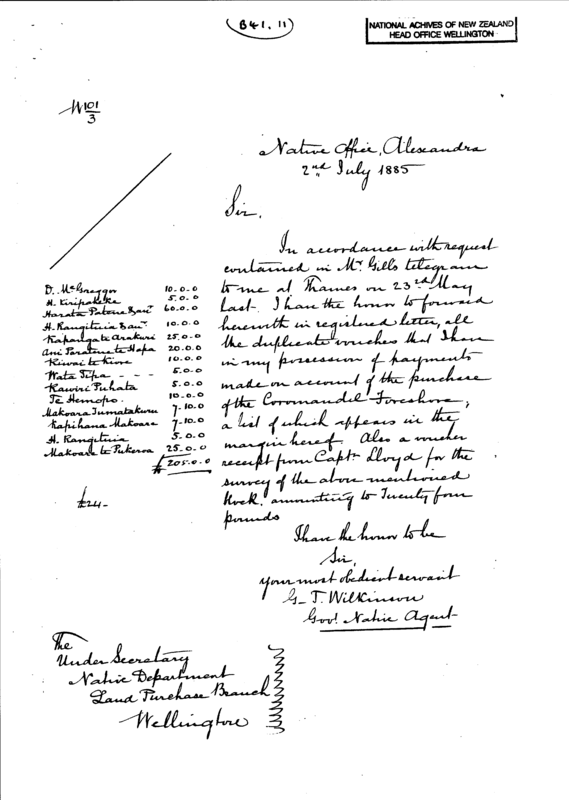 (B41. 11)
NATIONAL ACHIVES OF NEW ZEALAND
HEAD OFFICE WELLINGTON
101
3
Native Office, Alexandra
2nd July 1885
Sir,
In accordance with request
contained in Mr Gill's telegram
to me at Thames on 23rd May
last. I have the honor to forward
herewith in registered letter, all
the duplicate vouchers that I have
in my possession of payments
made on account of the purchase
of the Coromandel Foreshore,
a list of which appears in the
margin hereof. Also a voucher
receipt from Captn Lloyd for the
survey of the above mentioned
block, amounting to Twenty four
pounds
D. McGreggor 10.0.0
H. Kiripakeke 5.0.0
Harata Patene 60.0.0
H. Rangituia 10.0.0
Kapangate Arakuri 25.0.0
Ani Paratene te Hapa 20.0.0
Kiwai te Kiore 10.0.0
Wata Tipa - - - 5.0.0
Rawiri Puhata 5.0.0
Te Hemopo. 10.0.0
Makoara Tumatakuru 7.10.0
Rapihana Makoare 7.10.0
H. Rangituia 5.0.0
Makoare te Pukeroa 25.0.0
£205.0.0
£24-
I have the honor to be
Sir,
your most obedient servant
G. T. Wilkinson
Govt Native Agent
The
Under Secretary
Native Department
Land Purchase Branch
Wellington